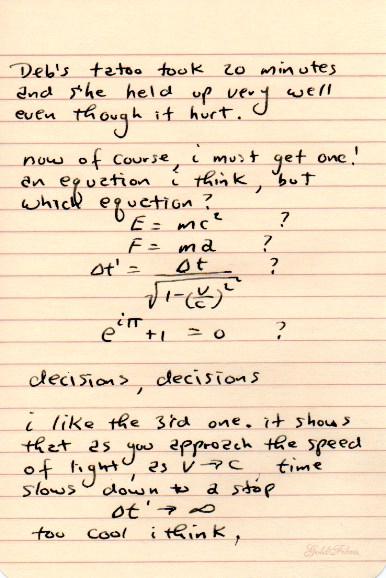 Deb's tatoo took 20 minutes
and she held up very well
even though it hurt.
now of course, i must get one!
an equation i think, but
which equation?
E = mc² ?
F = ma ?
Δt' = Δt / √1-(v/c)² ?
e^iπ + 1 = 0 ?
decisions, decisions
i like the 3rd one. it shows
that as you approach the speed
of light, as v → c time
slows down to a stop
Δt' → ∞
too cool i think,
Gold Films